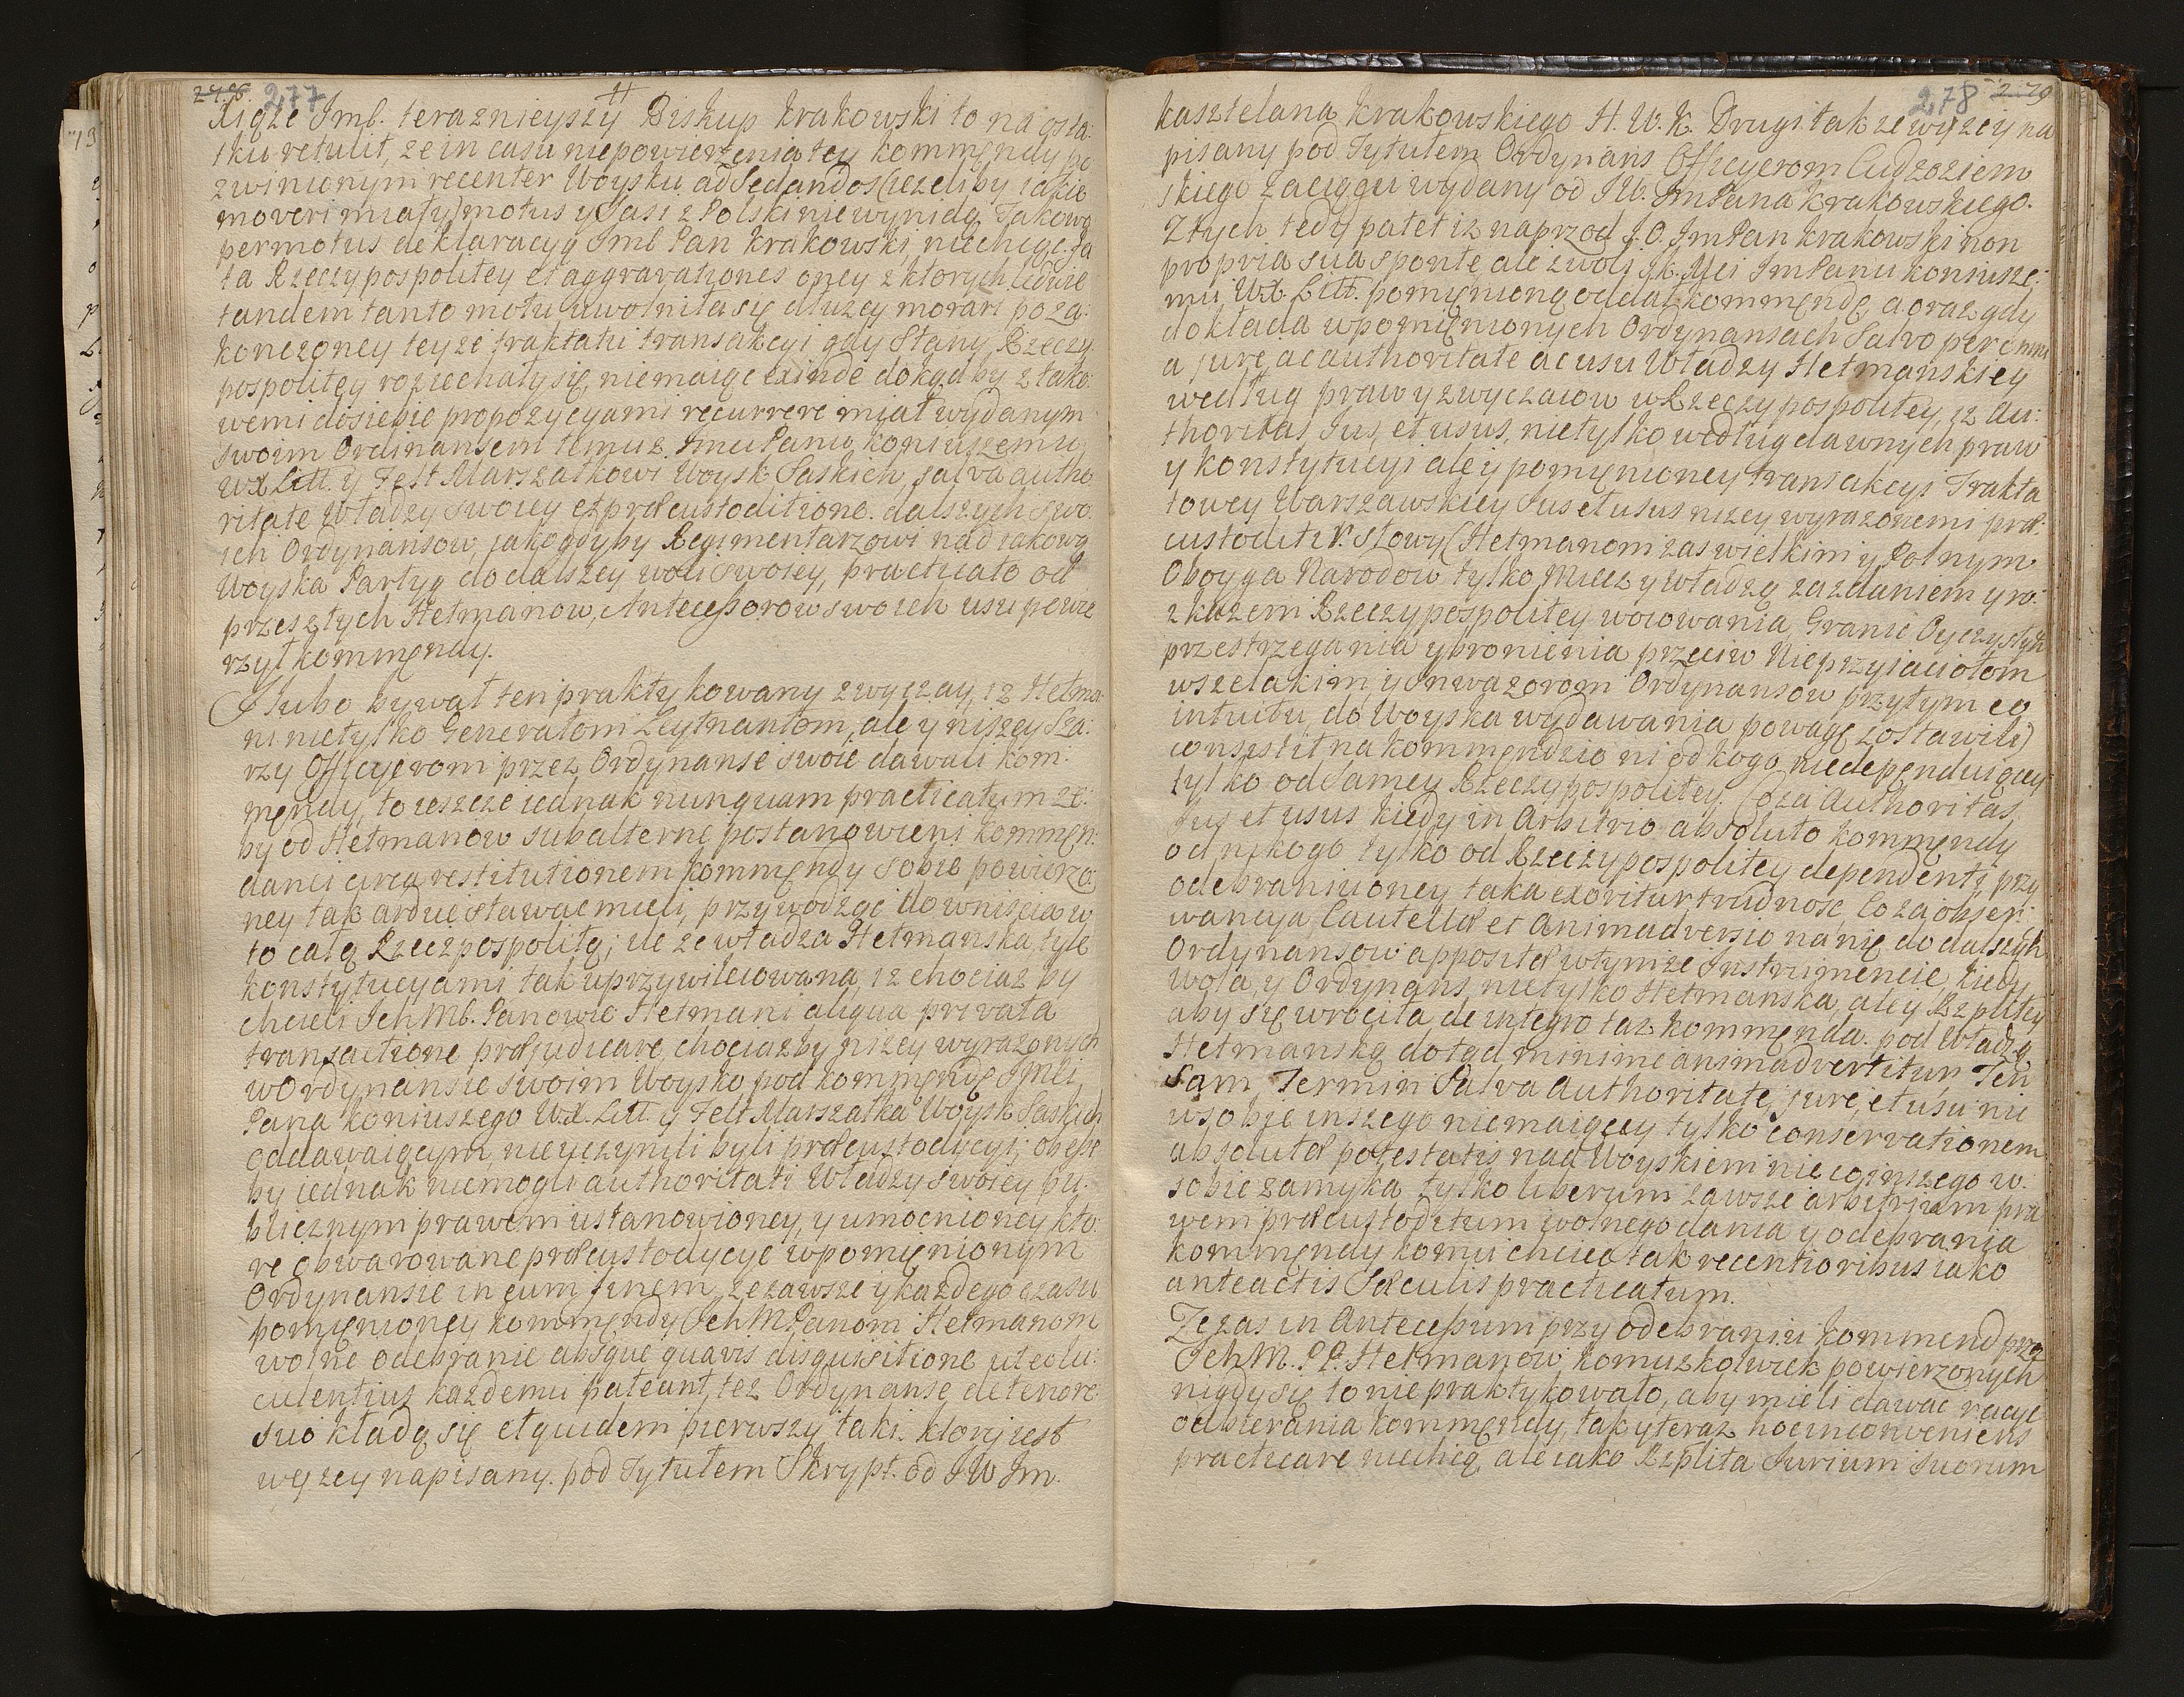 277
Xiąze Jmb. teraznieyszy Biskup Krakowski to na osta:
tku retulit, ze in casu niepowierzenia tey kommendy po
zwinionym recenter Woysku, ad sedandos (iezeliby iakie
moveri miały) motus y Sasi z Polski nie wynidą. Takową
permotus deklaracyą Jmb Pan Krakowski, niechcąc Fa
ta Rzeczypospolitey et aggravationes oney z ktorych ledwie
tandem tanto motu uwolniła się dłuzey morari po za:
konczoney teyze traktatu transakcyi gdy Stany Rzeczy
pospolitey roziechały się, niemaiąc exinde dokąd by z tako:
wemi do siebie propozycyami recurrere miał wydanym
swoim Ordinansem temuz Jmci Panu Koniuszemu
WX Litt. y Felt Marszałkowi Woysk Saskich, salva autho
ritate Władzy swoiey et præcustoditione dalszych swo
ich Ordynansow, jako gdyby Regimentarzowi nad iakową
Woyska Partyą do dalszey woli swoiey, practicato od
przeszłych Hetmanow, Antecessorow swoich usu powie
rzył kommendy.
I lubo bywał ten praktykowany zwyczay, iz Hetma:
ni nietylko Generałom Leytnantom, ale y niszey Sza:
rzy Officyerom przez Ordynanse swoie dawali kom:
mendy, to ieszcze iednak nunquam practicatum ze:
by od Hetmanow subalterne postanowieni kommen:
danci circa restitutionem kommendy sobie powierzo:
ney tak ardue stawac mieli, przywodząc do wniscia w
to całą Rzeczpospolitę; ile ze władza Hetmanska tyle
konstytucyami tak uprzywileiowana, iz chociaz by
chcieli Ich Mb. Panowie Hetmani aliqua privata
transactione præjudicare, chociazby nizey wyrazonych
w Ordynansie swoim Woysko pod kommendę JMci
Pana Koniuszego WX. Litt. y Felt Marszałka Woysk Saskich
oddawaiącym, nieuczynili byli præcustodycyi; obesse
by iednak niemogli authoritati Władzy swoiey pu:
blicznym prawem ustanowioney, y umocnioney kto:
re obwarowane præcustodycye w pomięnionym
Ordynansie in eum finem, ze zawsze y kazdego czasu
pomięnioney kommendy Ich M Panom Hetmanom
wolne odebranie absque quavis disquisitione ut eolu:
culentius kazdemu pateant, tez Ordynanse de tenore
suo kładą się et quidem pierwszy taki. ktory iest
wyzey napisany. pod Tytułem Skrypt. od J W Jm.
278
kasztelana Krakowskiego H. W. K. Drugi takze wyzey na
pisany pod Tytułem Ordynans Officyerom Cudzoziem
skiego Zaciągu wydany od J W. Jm Pana Krakowskiego.
Ztych tedy patet iz naprzod J. O. Jm Pan Krakowski non
propria sua sponte ale z woli JK. Mci Jm Panu Koniusze:
mu WX Litt. pomięnioną oddał kommendę, a oraz gdy
dokłada wpomięnionych Ordynansach Salvo per omni
a jure, ac authoritate ac usu Władzy Hetmanskiey
według praw y zwyczaiow w Rzeczypospolitey, iz Au:
thoritas, Ius, et usus, nietylko według dawnych praw
y konstytucyi ale y pomięnioney transakcyi Trakta
towey Warszawskiey Ius et usus nizey wyrazonemi præ:
custoditur słowy (Hetmanom zas wielkim y Polnym
Oboyga Narodow tylko Miecz y władzę za zdaniem y ro:
zkazem Rzeczypospolitey woiowania, Granic Oyczystych
przestrzegania y bronienia przeciw Nieprzyiaciołom
wszelakim y Inwazorom Ordynansow przytym eo
intuitu, do Woyska wydawania powagę zostawili)
consistit na kommendzie ni od kogo niedependuiącey
tylko od Samey Rzeczypospolitey. Coza Authoritas,
Ius et usus kiedy in Arbitrio absoluto kommendy
od nikogo tylko od Rzeczypospolitey dependenti przy
odebraniu oney taka exoritur trudnosc, Co za obser:
wancya, Cautellæ et Animadversio na nię do dalszych
Ordynansow appositæ w tymze Instrumencie, kiedy
wola, y Ordynans nietylko Hetmanska, ale y Rzpltey
aby się wrociła de integro taz kommenda. pod Władzą
Hetmanską dotąd minime animadvertitur Ten
sam Termin Salva Authoritate, jure, et usu nic
w sobie inszego niemaiący tylko conservationem
absolutæ potestatis nad Woyskiem nic co inszego w
sobie zamyka tylko liberum zawsze arbitrium pra
wem præcustoditum wolnego dania y odebrania
kommendy komu chciec tak recentioribus iako
anteactis Sæculis practicatum.
Ze zas in Antecessum przy odebraniu kommend prze
Ich M. PP. Hetmanow, komuzkolwiek powierzonych
nigdy się to nie praktykowało, aby mieli dawac racye
odbierania kommendy, tak y teraz hoc inconveniens
practicare niechcą, ale iako Rzplita Jurium suorum